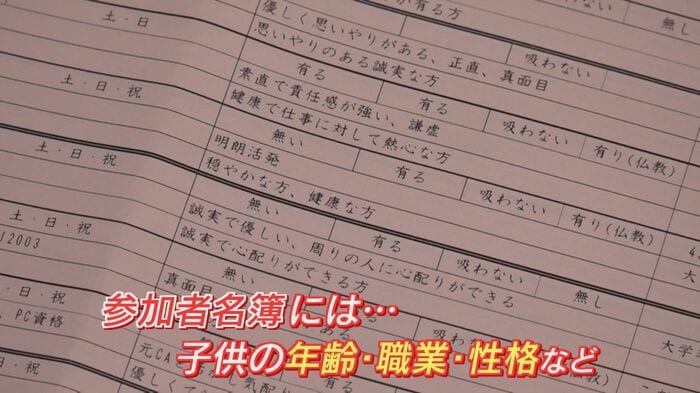 が有る方
吸わない
無し
土・日
優しく思いやりがある、正直、真面目
思いやりのある誠実な方
有る
有る
吸わない
有り(仏教)
土・日・祝
素直で責任感が強い、謙虚
健康で仕事に対して熱心な方
無い
有る
吸わない
有り(仏教)
土・日・祝
明朗活発
穏やかな方、健康な方
無い
有る
吸わない
無し
土・日・祝
誠実で優しい、周りの人に心配りができる
誠実で心配りができる方
無い
2003
日・祝
真面目
PC資格
元CA
参加者名簿には…
子供の年齢・職業・性格など